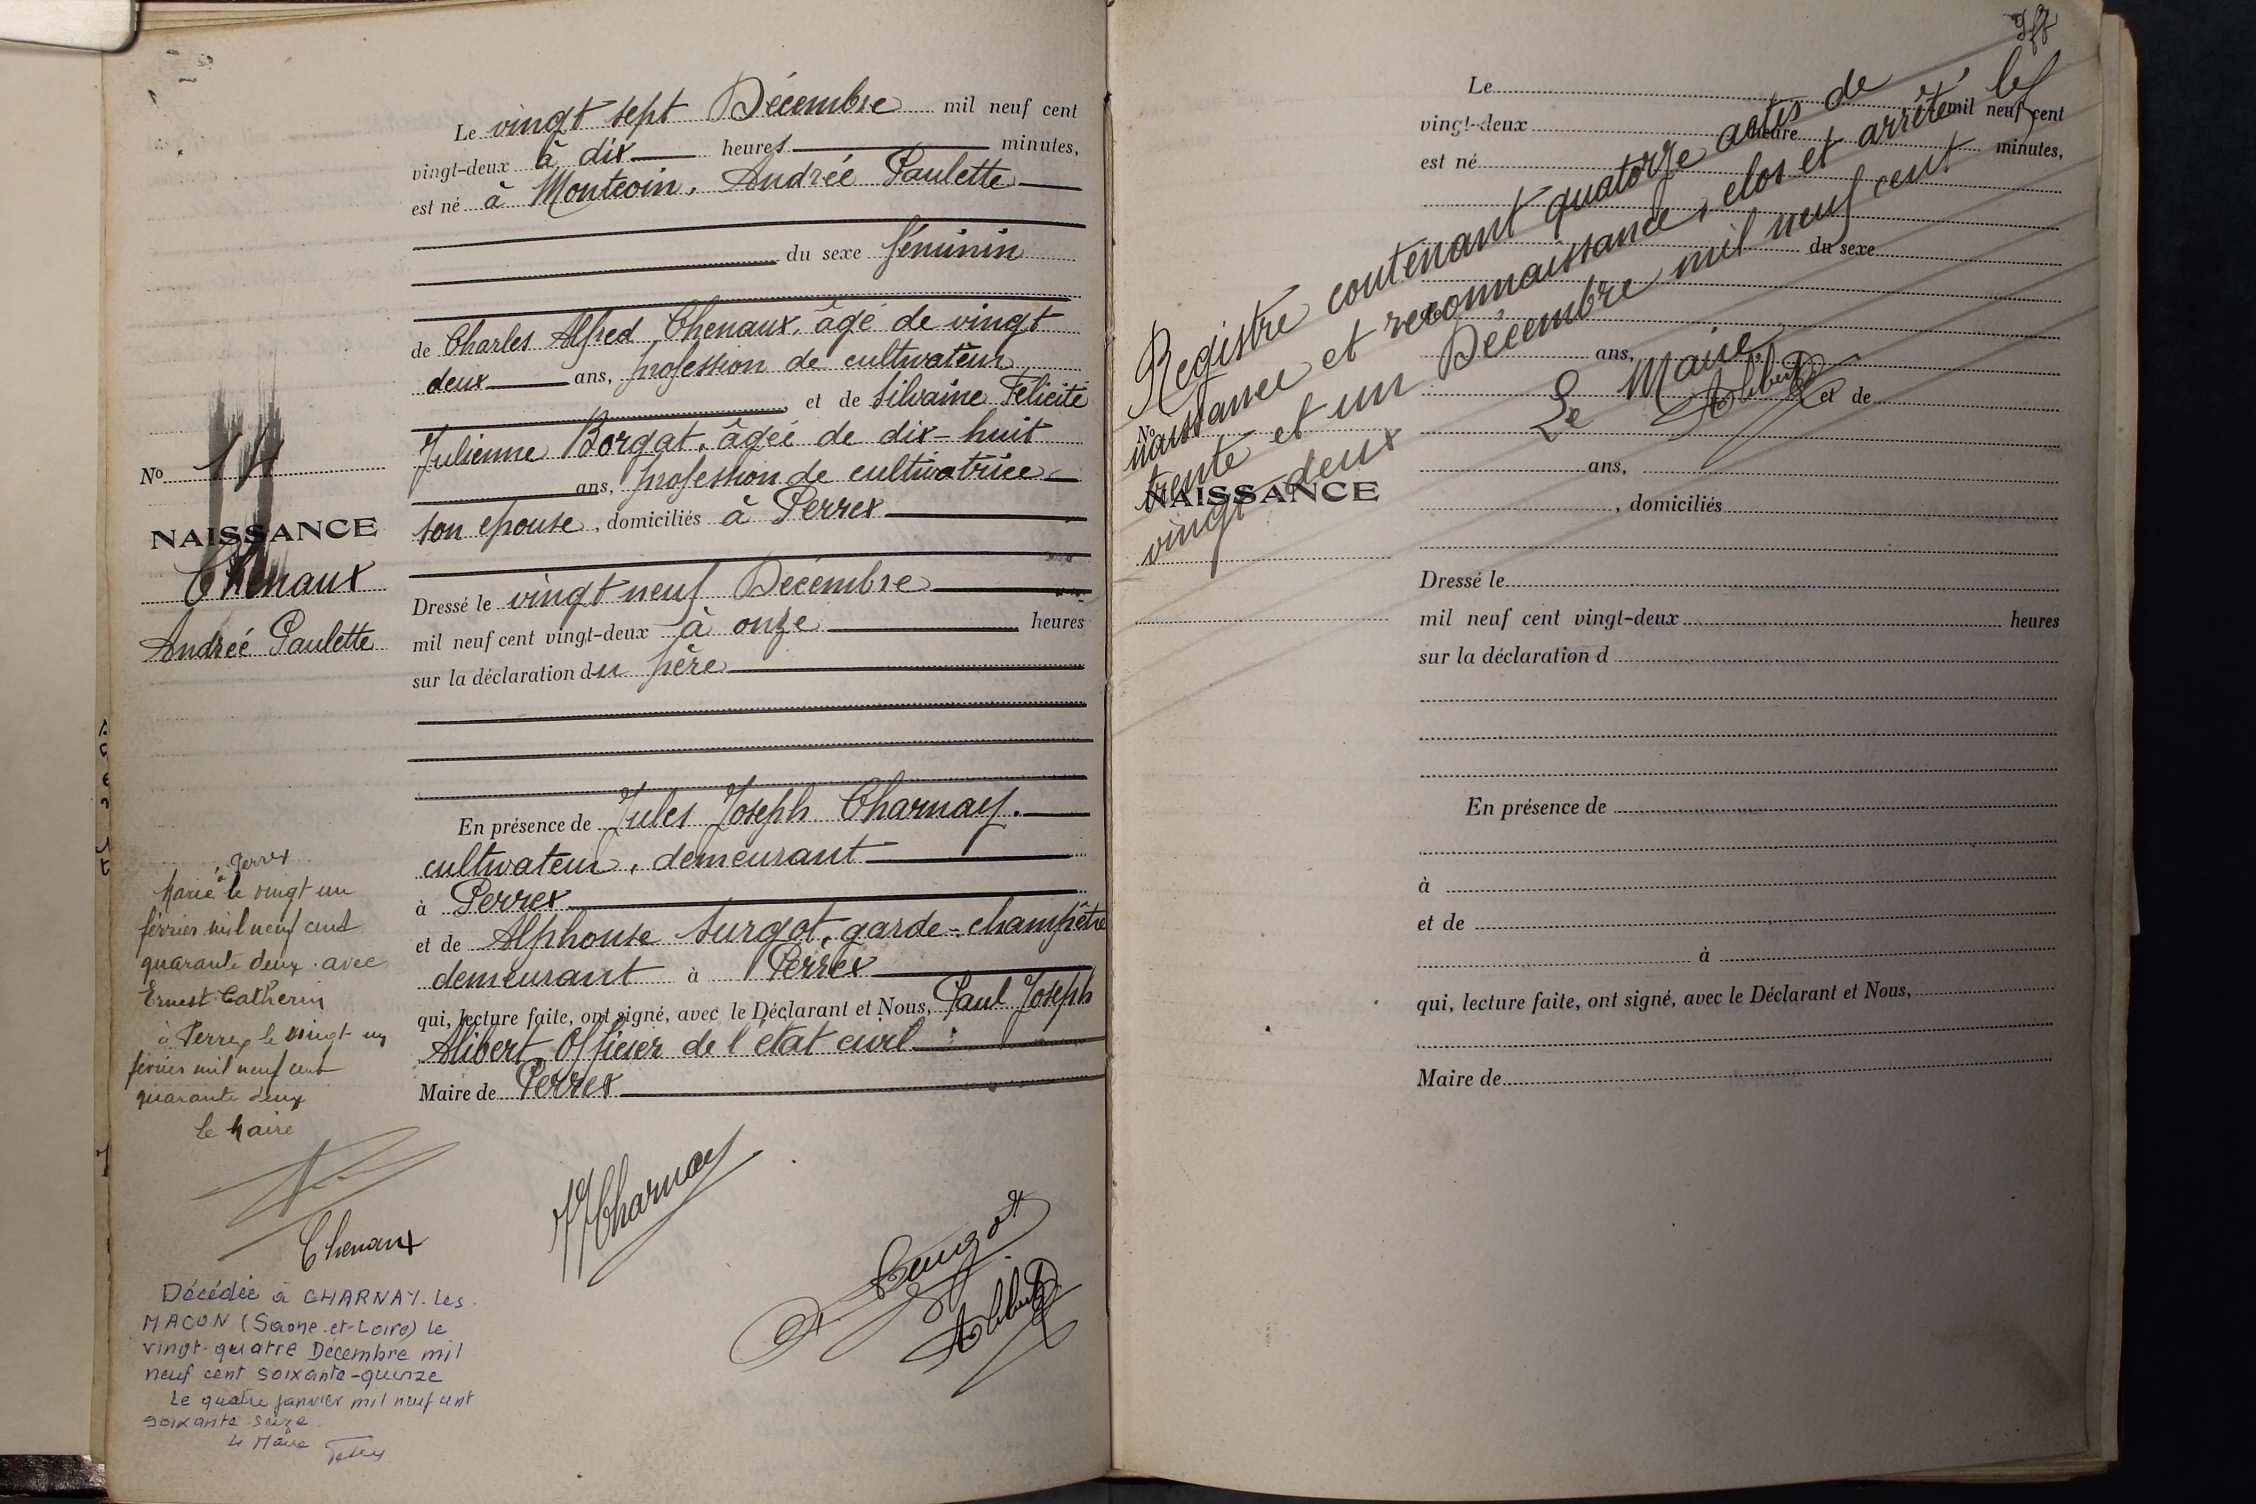 Le vingt sept Décembre mil neuf cent
vingt-deux à dix heures minutes,
est né à Montcoin, Andréé Paulette
du sexe féminin
de Charles Alfred Chenaux, âgé de vingt
deux ans, profession de cultivateur
, et de Silvaine Félicité
Julienne Borgat, âgée de dix-huit
ans, profession de cultivatrice
son epouse, domiciliés à Perrex
Dressé le vingt neuf Décembre
mil neuf cent vingt-deux à onze heures
sur la déclaration du père
En présence de Jules Joseph Charnay.
cultivateur, demeurant
à Perrex
et de Alphonse Surgot, garde-champêtre
demeurant à Perrex
qui, lecture faite, ont signé, avec le Déclarant et Nous, Paul Joseph
Alibert, Officier de l'état civil
Maire de Perrex
No 14
NAISSANCE
Chenaux
Andréé Paulette
à Perrex
Marié le vingt un
février mil neuf cent
quarante deux avec
Ernest Catherin
à Perrex le vingt un
février mil neuf cent
quarante deux
Le Maire
Chenaux
JJ Charnay
Surgot
Alibert
Décédée à CHARNAY-Les-
MACON (Saone-et-Loire) le
vingt-quatre Décembre mil
neuf cent soixante-quinze
Le quatre janvier mil neuf cent
soixante seize
Le Maire
Registre contenant quatorze actes de
naissance et reconnaissance, clos et arrêté le
trente et un Décembre mil neuf cent
vingt deux
Le Maire,
Alibert
Le
vingt-deux heure mil neuf cent
est né minutes,
du sexe
de
ans,
et de
ans,
, domiciliés
No
NAISSANCE
Dressé le
mil neuf cent vingt-deux heures
sur la déclaration d
En présence de
à
et de
à
qui, lecture faite, ont signé, avec le Déclarant et Nous,
Maire de